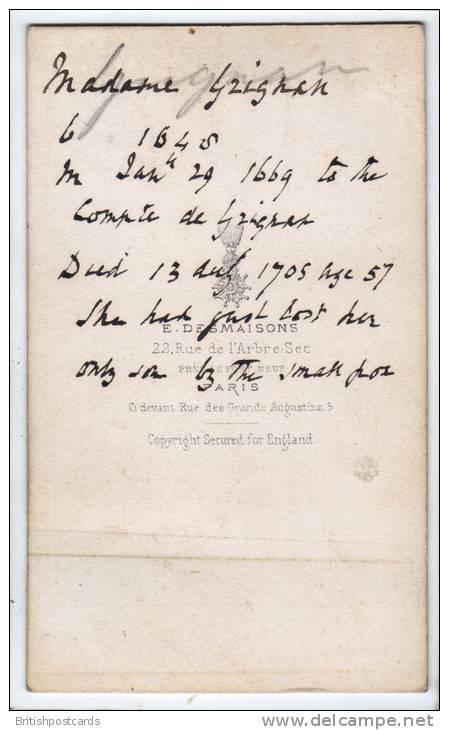 Grignan
Madame Grignan
b 1648
m Jany 29 1669 to the
Compte de Grignan
Died 13 Augt 1705 age 57
She had just lost her
E. DESMAISONS
22, Rue de l'Arbre-Sec
only son by the small pox
PRÈS LE PONT NEUF
PARIS
Ci devant Rue des Grands Augustins, 5
Copyright Secured for England
Britishpostcards
http://www.delcampe.net